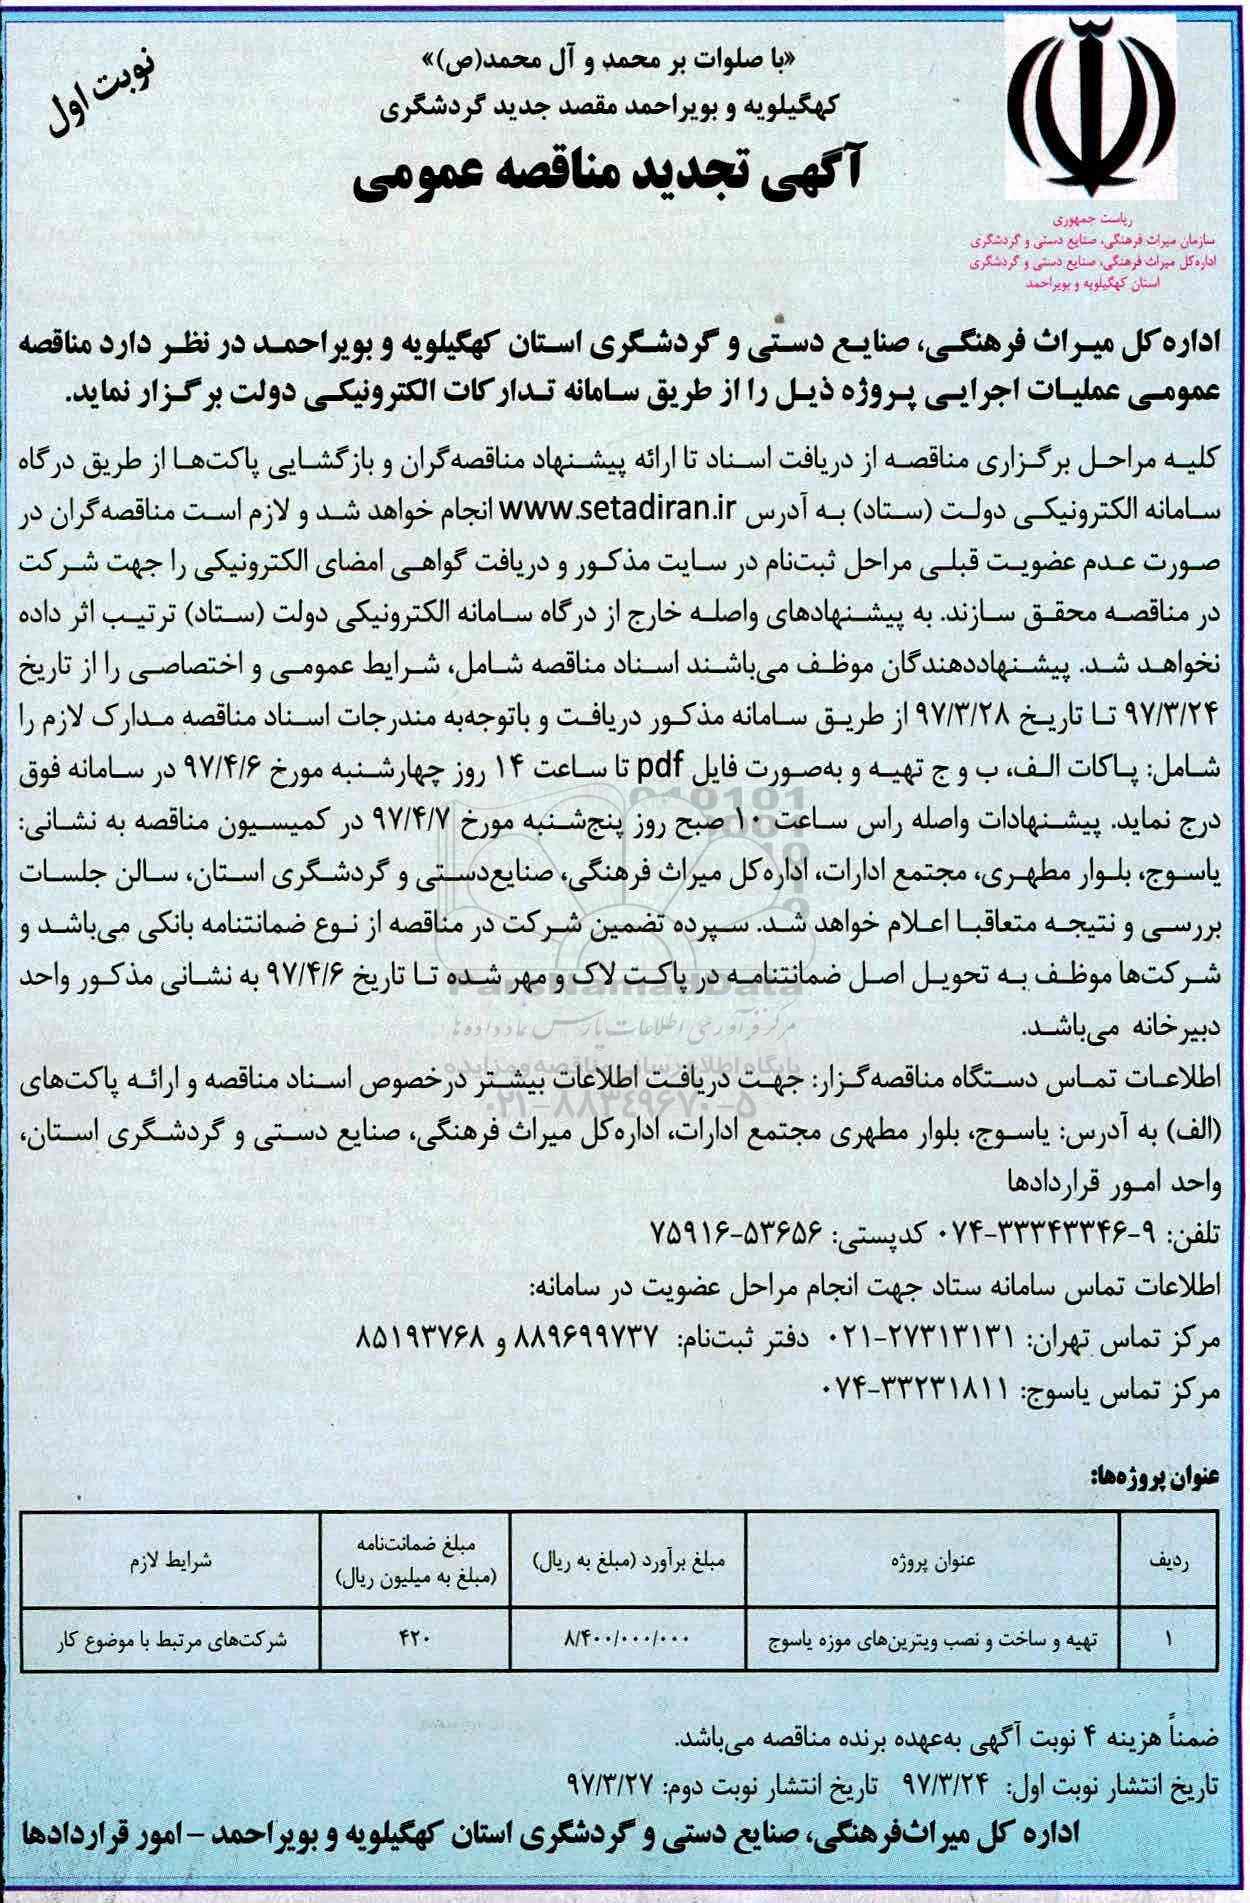 «با صلوات بر محمد و آل محمد(ص)»
نوبت اول
کهگیلویه و بویراحمد مقصد جدید گردشگری
آگهی تجدید مناقصه عمومی
ریاست جمهوری
سازمان میراث فرهنگی، صنایع دستی و گردشگری
اداره‌کل میراث فرهنگی، صنایع دستی و گردشگری
استان کهگیلویه و بویراحمد
اداره‌کل میراث فرهنگی، صنایع دستی و گردشگری استان کهگیلویه و بویراحمد در نظر دارد مناقصه
عمومی عملیات اجرایی پروژه ذیل را از طریق سامانه تدارکات الکترونیکی دولت برگزار نماید.
کلیه مراحل برگزاری مناقصه از دریافت اسناد تا ارائه پیشنهاد مناقصه‌گران و بازگشایی پاکت‌ها از طریق درگاه
سامانه الکترونیکی دولت (ستاد) به آدرس www.setadiran.ir انجام خواهد شد و لازم است مناقصه‌گران در
صورت عدم عضویت قبلی مراحل ثبت‌نام در سایت مذکور و دریافت گواهی امضای الکترونیکی را جهت شرکت
در مناقصه محقق سازند. به پیشنهادهای واصله خارج از درگاه سامانه الکترونیکی دولت (ستاد) ترتیب اثر داده
نخواهد شد. پیشنهاددهندگان موظف می‌باشند اسناد مناقصه شامل، شرایط عمومی و اختصاصی را از تاریخ
۹۷/۳/۲۴ تا تاریخ ۹۷/۳/۲۸ از طریق سامانه مذکور دریافت و باتوجه‌به مندرجات اسناد مناقصه مدارک لازم را
شامل: پاکات الف، ب و ج تهیه و به‌صورت فایل pdf تا ساعت ۱۴ روز چهارشنبه مورخ ۹۷/۴/۶ در سامانه فوق
درج نماید. پیشنهادات واصله راس ساعت ۱۰ صبح روز پنج‌شنبه مورخ ۹۷/۴/۷ در کمیسیون مناقصه به نشانی:
یاسوج، بلوار مطهری، مجتمع ادارات، اداره‌کل میراث فرهنگی، صنایع‌دستی و گردشگری استان، سالن جلسات
بررسی و نتیجه متعاقبا اعلام خواهد شد. سپرده تضمین شرکت در مناقصه از نوع ضمانتنامه بانکی می‌باشد و
شرکت‌ها موظف به تحویل اصل ضمانتنامه در پاکت لاک و مهر شده تا تاریخ ۹۷/۴/۶ به نشانی مذکور واحد
دبیرخانه می‌باشد.
ParsNamadData
مرکز فرآوری اطلاعات پارس نماد داده‌ها
پایگاه اطلاع رسانی مناقصه و مزایده
۰۲۱-۸۸۳۴۹۶۷۰-۵
اطلاعات تماس دستگاه مناقصه‌گزار: جهت دریافت اطلاعات بیشتر درخصوص اسناد مناقصه و ارائه پاکت‌های
(الف) به آدرس: یاسوج، بلوار مطهری مجتمع ادارات، اداره‌کل میراث فرهنگی، صنایع دستی و گردشگری استان،
واحد امور قراردادها
تلفن: ۹-۳۳۳۴۳۳۴۶-۰۷۴ کدپستی: ۵۳۶۵۶-۷۵۹۱۶
اطلاعات تماس سامانه ستاد جهت انجام مراحل عضویت در سامانه:
مرکز تماس تهران: ۲۷۳۱۳۱۳۱-۰۲۱ دفتر ثبت‌نام: ۸۸۹۶۹۹۷۳۷ و ۸۵۱۹۳۷۶۸
مرکز تماس یاسوج: ۳۳۲۳۱۸۱۱-۰۷۴
عنوان پروژه‌ها:
ردیف عنوان پروژه مبلغ برآورد (مبلغ به ریال) مبلغ ضمانت‌نامه (مبلغ به میلیون ریال) شرایط لازم
۱ تهیه و ساخت و نصب ویترین‌های موزه یاسوج ۸/۴۰۰/۰۰۰/۰۰۰ ۴۲۰ شرکت‌های مرتبط با موضوع کار
ضمناً هزینه ۴ نوبت آگهی به‌عهده برنده مناقصه می‌باشد.
تاریخ انتشار نوبت اول: ۹۷/۳/۲۴ تاریخ انتشار نوبت دوم: ۹۷/۳/۲۷
اداره کل میراث‌فرهنگی، صنایع دستی و گردشگری استان کهگیلویه و بویراحمد – امور قراردادها